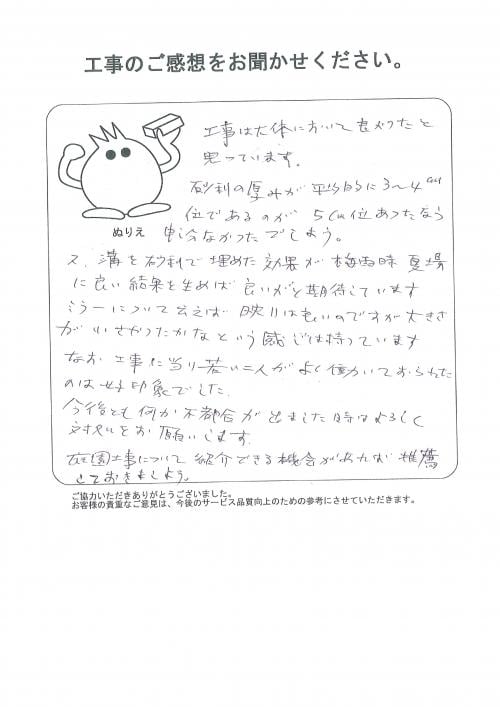 工事のご感想をお聞かせください。
工事は大体において良かったと
思っています。
砂利の厚みが平均的に3〜4cm
位であるのが5cm位あったなら
ぬりえ
申分なかったでしょう。
又、溝を砂利で埋めた効果が梅雨時夏場
に良い結果を生めば良いがと期待しています
ミラーについて云えば映りは良いのですが大きさ
が小さかったかなという感じは持っています
なお工事に当り若い二人がよく働いておられた
のは好印象でした。
今後とも何か不都合が出ました時はよろしく
対処をお願いします。
庭園工事について紹介できる機会があれば推薦
しておきましょう。
ご協力いただきありがとうございました。
お客様の貴重なご意見は、今後のサービス品質向上のための参考にさせていただきます。